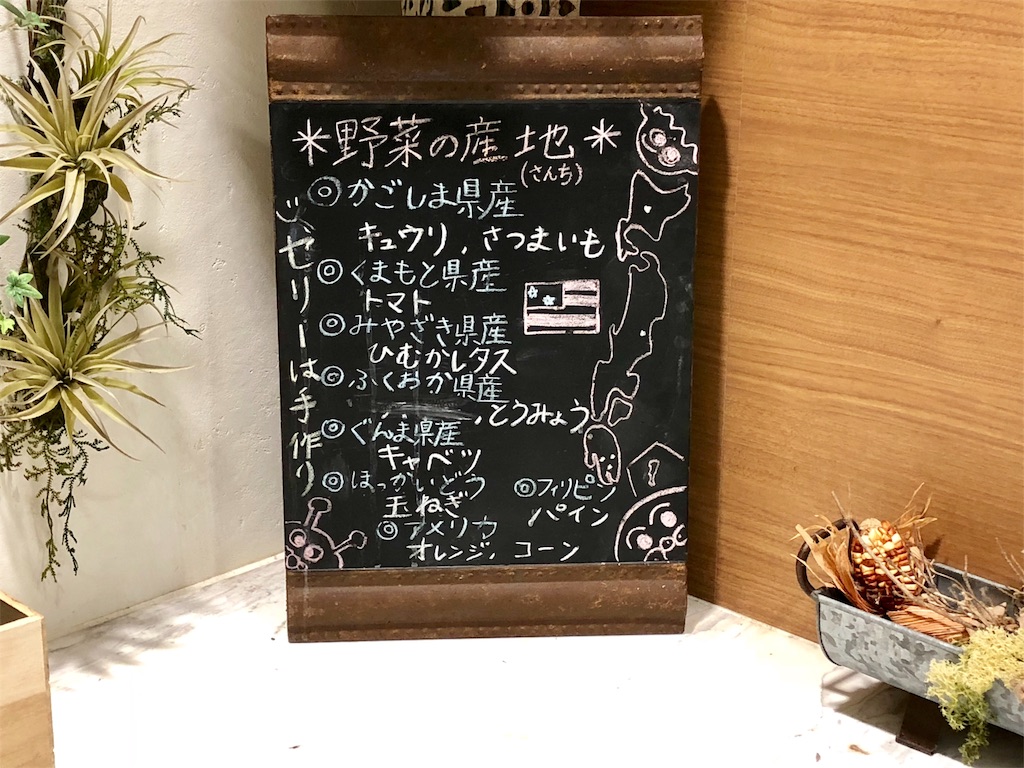 *野菜の産地*
(さんち)
◎かごしま県産
キュウリ、さつまいも
◎くまもと県産
トマト
◎みやざき県産
ひむかレタス
◎ふくおか県産
、とうみょう
◎ぐんま県産
キャベツ
◎ほっかいどう
玉ねぎ
◎フィリピン
パイン
◎アメリカ
オレンジ、コーン
ゼリーは手作り